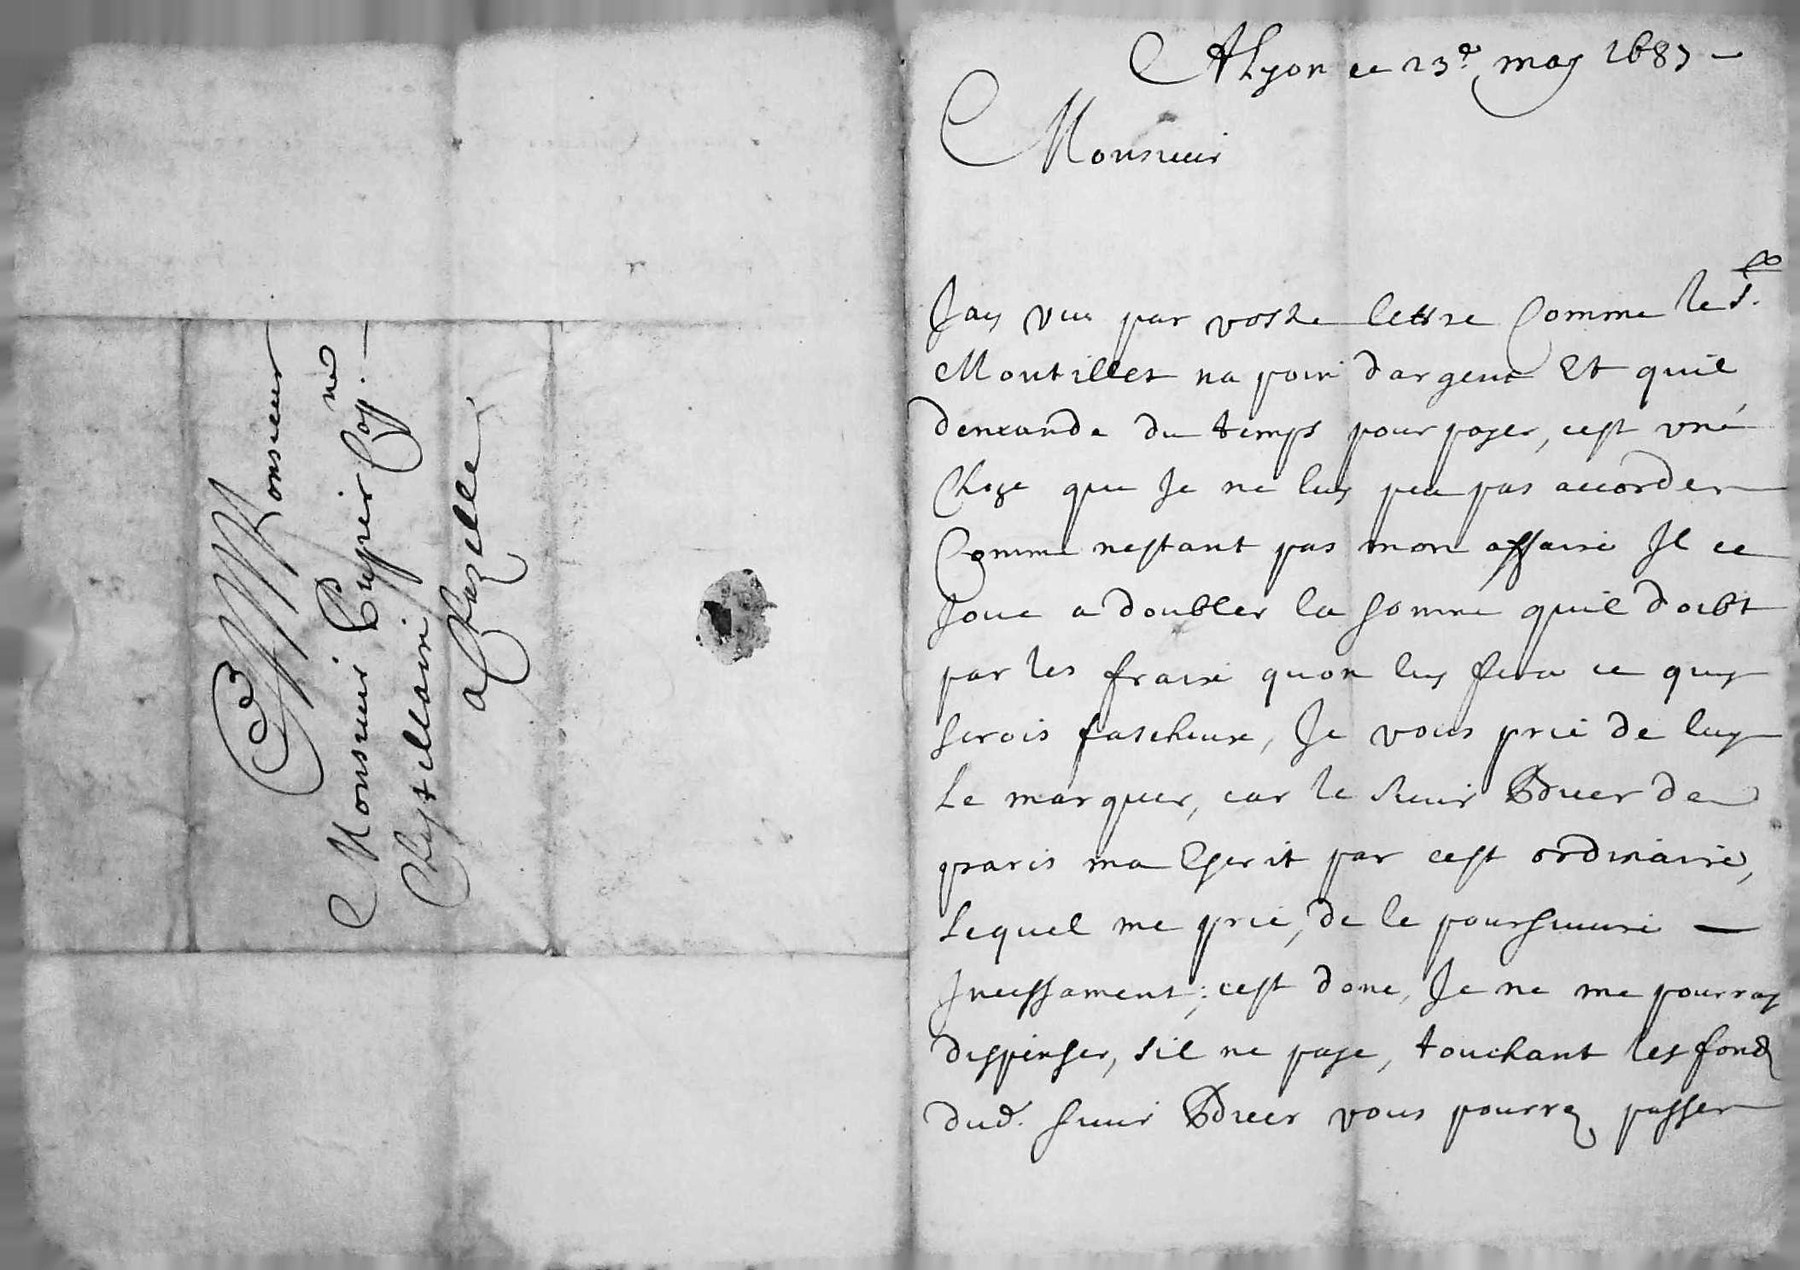 Monsieur
Monsieur Pupier Con.
Chastellain
a Chazelle
A Lyon ce 23e may 1687
Monsieur
Jay veu par vostre lettre Comme le Sr.
Montillet na poin dargent Et quil
demande du temps pour payer, cest une
Choze que Je ne luy peu pas accorder
Comme nestant pas mon affaire Il ce
Joue a doubler la somme quil doibt
par les fraix quon luy fera ce quy
serois fascheux, Je vous prie de luy
Le marquer, car le sieur de
paris ma Escrit par cest ordinaire,
Lequel me prie, de le poursuivre
Incessament; cest donc, Je ne me pourray
dispenser, sil ne paye, touchant les fond
dud. sieur vous pourrez passer